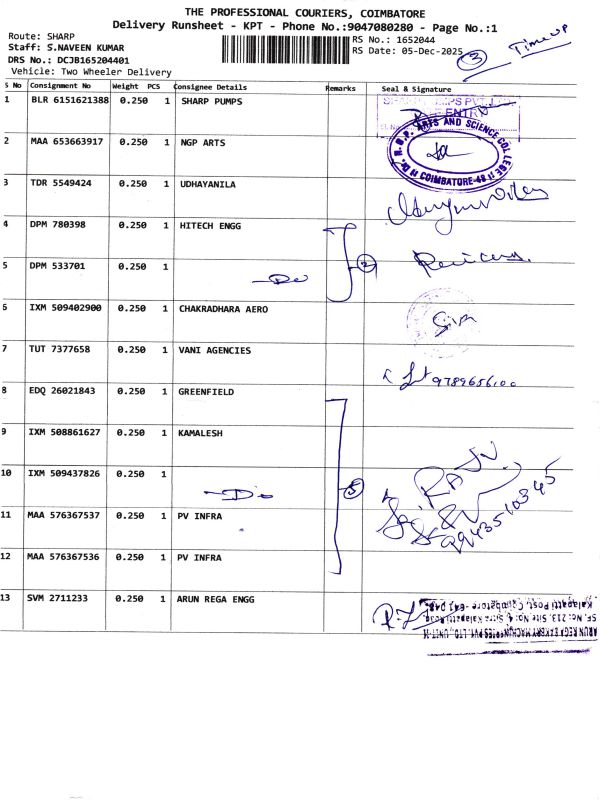 THE PROFESSIONAL COURIERS, COIMBATORE
Delivery Runsheet - KPT - Phone No.:9047080280 - Page No.:1
Route: SHARP
RS No.: 1652044
Staff: S.NAVEEN KUMAR
RS Date: 05-Dec-2025
DRS No.: DCJB165204401
Vehicle: Two Wheeler Delivery
3 TIME UP
S No Consignment No Weight PCS Consignee Details Remarks Seal & Signature
1 BLR 6151621388 0.250 1 SHARP PUMPS
ENTRY
2 MAA 653663917 0.250 1 NGP ARTS
ARTS AND SCIENCE COLLEGE
COIMBATORE-48
3 TDR 5549424 0.250 1 UDHAYANILA
4 DPM 780398 0.250 1 HITECH ENGG
5 DPM 533701 0.250 1
2
6 IXM 509402900 0.250 1 CHAKRADHARA AERO
7 TUT 7377658 0.250 1 VANI AGENCIES
9789656100
8 EDQ 26021843 0.250 1 GREENFIELD
9 IXM 508861627 0.250 1 KAMALESH
10 IXM 509437826 0.250 1
RAJU
9943510345
11 MAA 576367537 0.250 1 PV INFRA
12 MAA 576367536 0.250 1 PV INFRA
13 SVM 2711233 0.250 1 ARUN REGA ENGG
ARUN REGA BAKERY MACHINERIES PVT. LTD., UNIT-II
SF. No: 213, Site No: 4, Sitra Kalapatti Road,
Kalapatti Post, Coimbatore